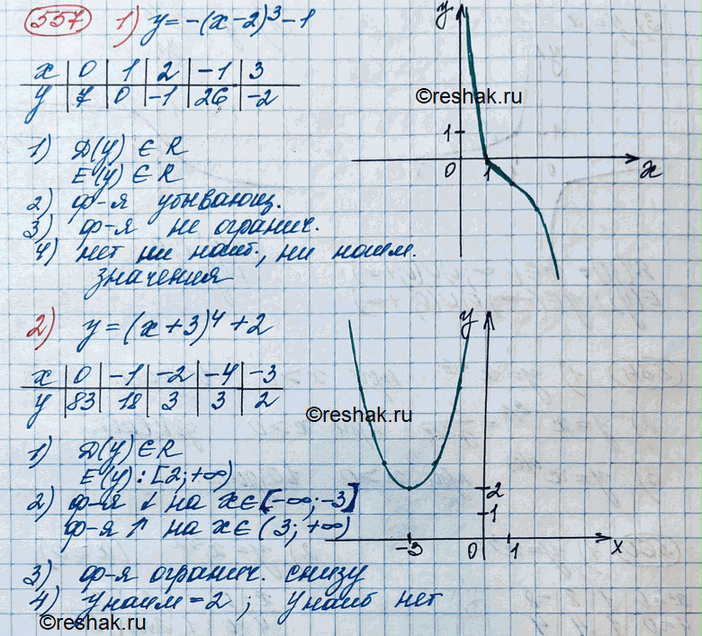 557 1) y = -(x-2)³-1
x | 0 | 1 | 2 | -1 | 3
y | 7 | 0 | -1 | 26 | -2
1) D(y) ∈ R
E(y) ∈ R
2) ф-я убывающ.
3) ф-я не огранич.
4) нет ни наиб., ни наим.
значения
y
©reshak.ru
1
0 1 x
2) y = (x+3)⁴+2
x | 0 | -1 | -2 | -4 | -3
y | 83 | 18 | 3 | 3 | 2
©reshak.ru
1) D(y) ∈ R
E(y): [2; +∞)
2) ф-я ↓ на x∈[-∞; -3]
ф-я ↑ на x∈(3; +∞)
3) ф-я огранич. снизу
4) y наим = 2 ; y наиб нет
©reshak.ru
y
2
1
-3 0 1 x